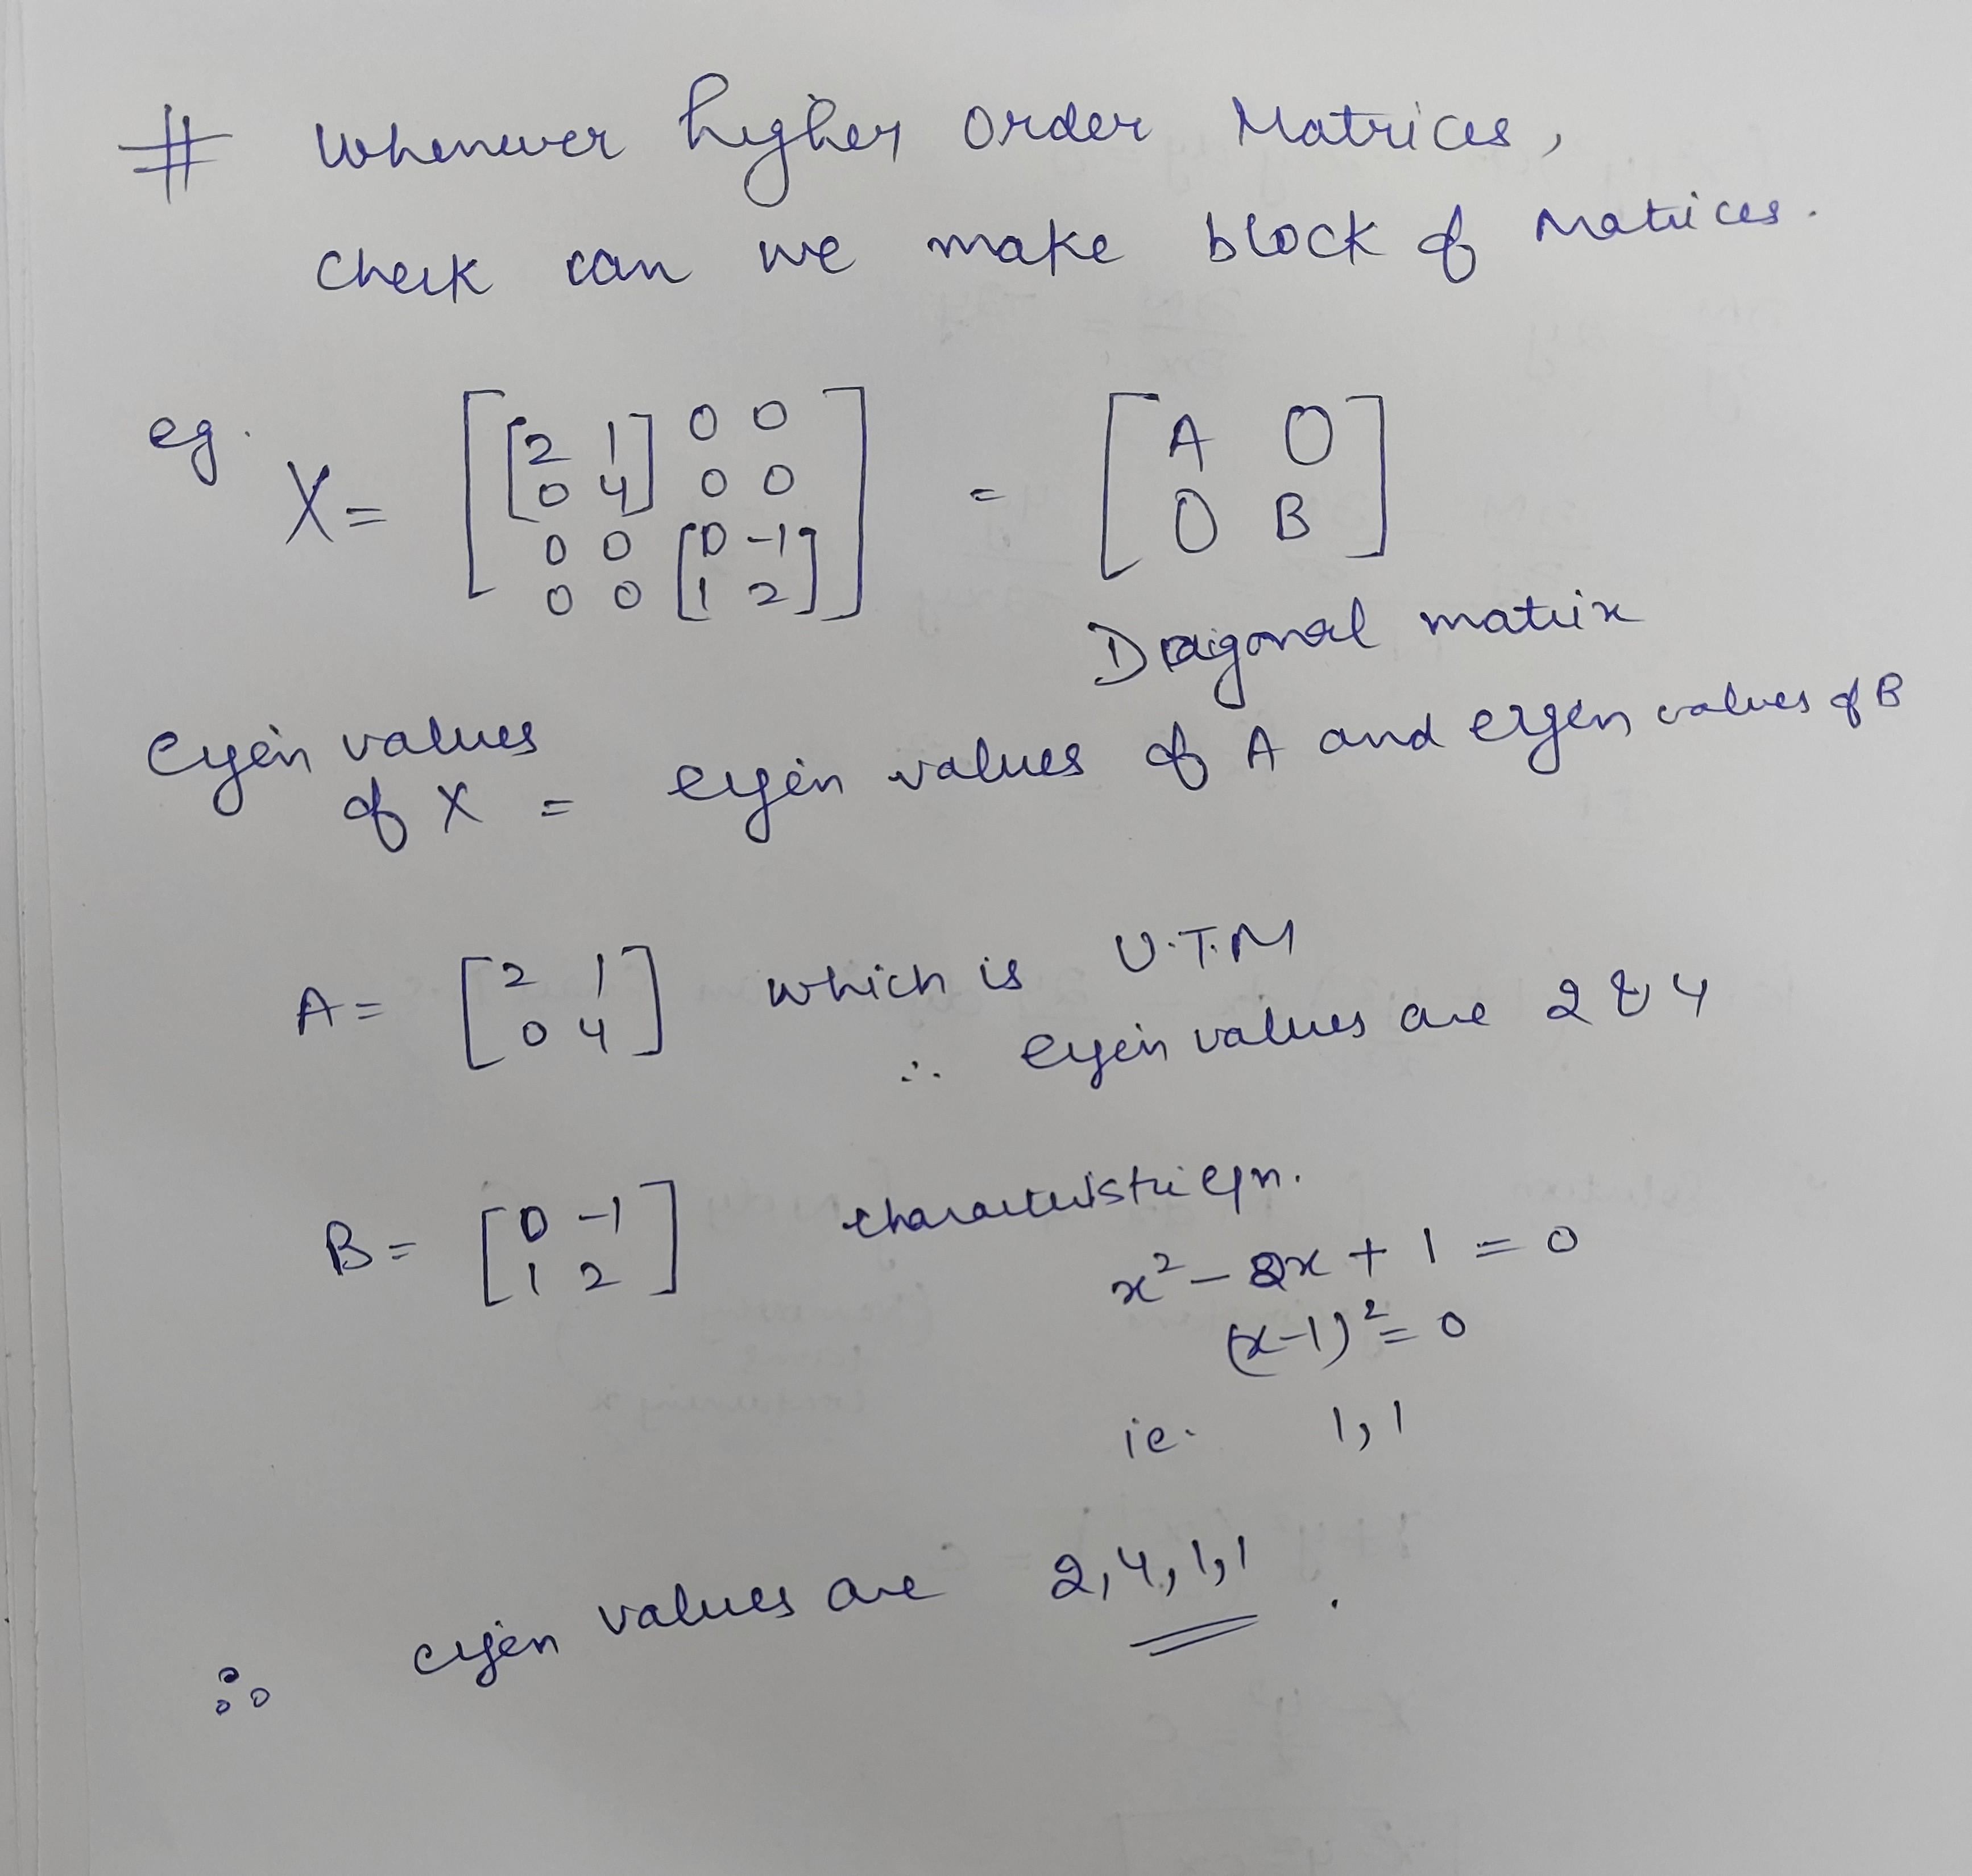 # Whenever higher order Matrices,
check can we make block of Matrices.
eg. X = [[2 1] 0 0 = [A O
[0 4] 0 0 O B]
0 0 [0 -1]
0 0 [1 2]]
Diagonal matrix
eigen values
of X = eigen values of A and eigen values of B
A = [2 1 which is U.T.M
0 4]
∴ eigen values are 2 & 4
B = [0 -1 characteristic eqn.
1 2]
x² - 2x + 1 = 0
(x-1)² = 0
ie. 1, 1
∴ eigen values are 2, 4, 1, 1.